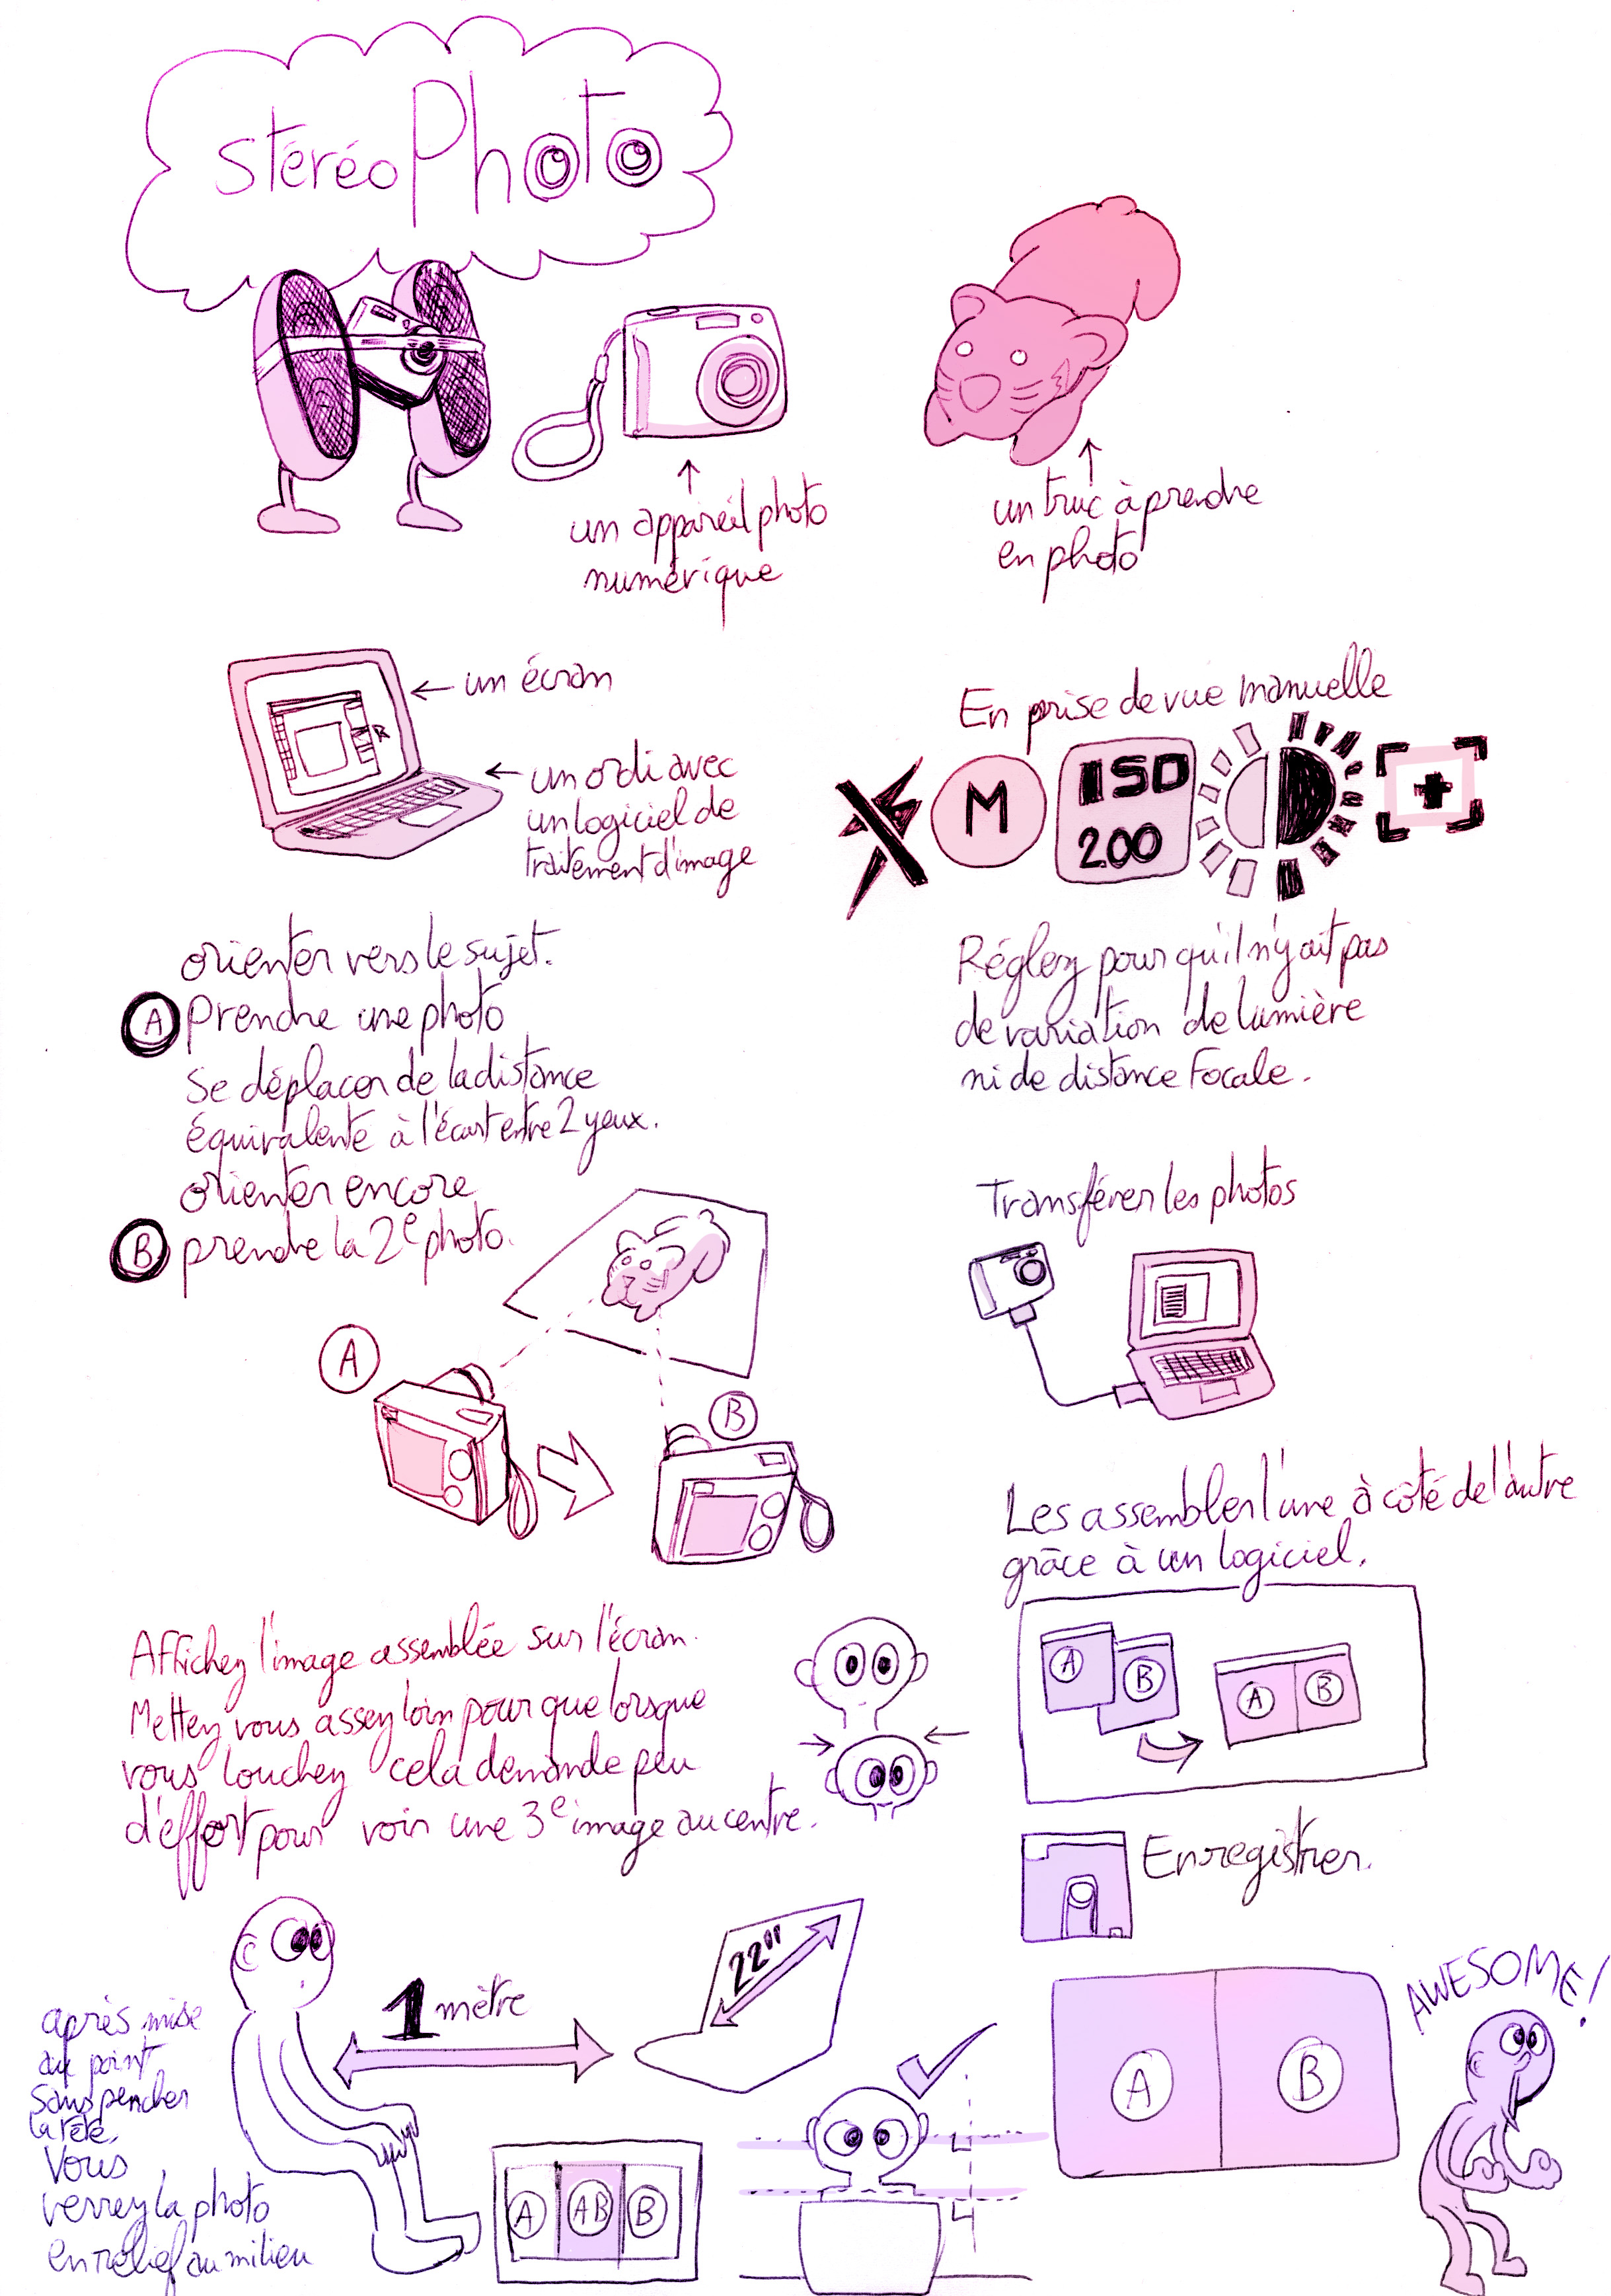 stéréoPhoto
un appareil photo
numérique
un truc à prendre
en photo
un écran
un ordi avec
un logiciel de
traitement d'image
En prise de vue manuelle
M
ISO
200
Réglez pour qu'il n'y ait pas
de variation de lumière
ni de distance Focale.
orienter vers le sujet.
A prendre une photo
se déplacer de la distance
équivalente à l'écart entre 2 yeux.
orienter encore
B prendre la 2e photo.
A
B
Transférer les photos
Les assembler l'une à côté de l'autre
grâce à un logiciel.
A
B
A
B
Enregistrer.
Affichez l'image assemblée sur l'écran.
Mettez vous assez loin pour que lorsque
vous louchez cela demande peu
d'effort pour voir une 3e image au centre.
1 mètre
22"
après mise
au point,
sans pencher
la tête,
Vous
verrez la photo
en relief au milieu
A
AB
B
A
B
AWESOME!